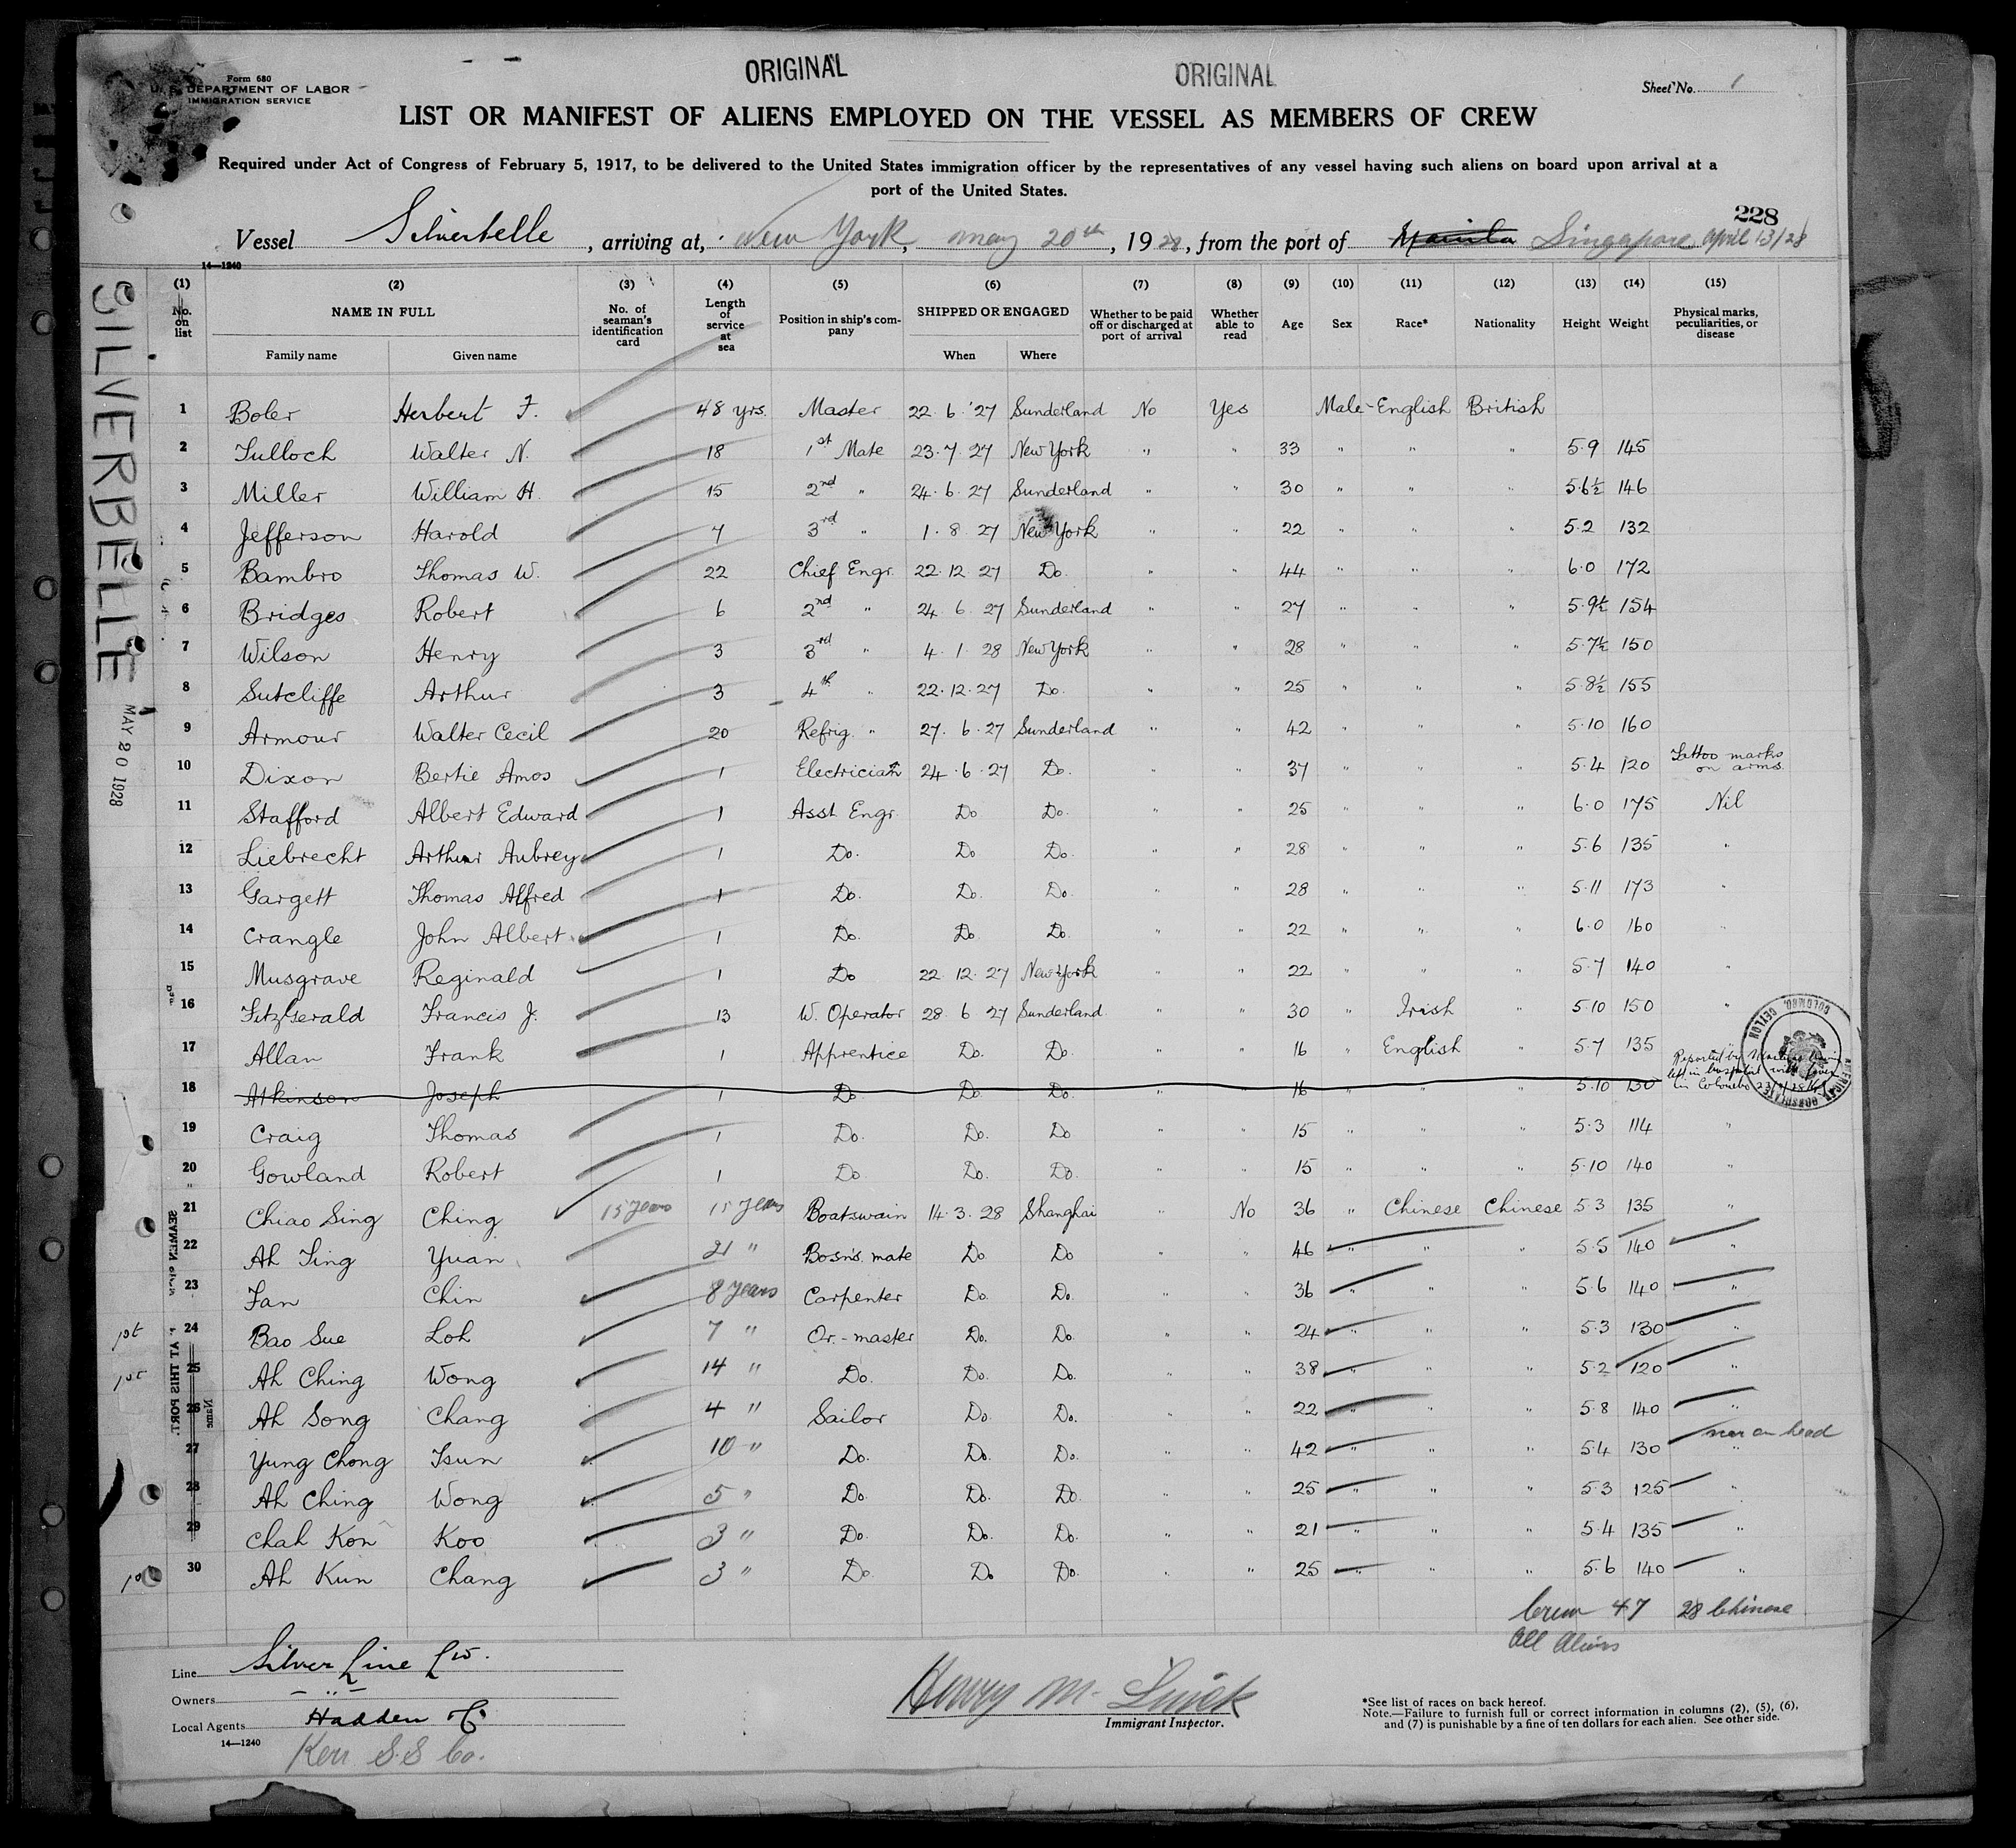 ORIGINAL ORIGINAL
Form 680
U. S. DEPARTMENT OF LABOR
IMMIGRATION SERVICE
Sheet No. 1
LIST OR MANIFEST OF ALIENS EMPLOYED ON THE VESSEL AS MEMBERS OF CREW
Required under Act of Congress of February 5, 1917, to be delivered to the United States immigration officer by the representatives of any vessel having such aliens on board upon arrival at a
port of the United States.
228
Vessel Silverbelle, arriving at, New York, May 20th, 1928, from the port of Manila Singapore April 13/28
14—1240
(1) (2) (3) (4) (5) (6) (7) (8) (9) (10) (11) (12) (13) (14) (15)
No. on list NAME IN FULL No. of seaman's identification card Length of service at sea Position in ship's company SHIPPED OR ENGAGED Whether to be paid off or discharged at port of arrival Whether able to read Age Sex Race* Nationality Height Weight Physical marks, peculiarities, or disease
Family name Given name When Where
1 Boler Herbert F. 48 yrs. Master 22.6.'27 Sunderland No Yes Male English British
2 Tulloch Walter N. 18 1st Mate 23.7.27 New York " " 33 " " " 5.9 145
3 Miller William H. 15 2nd " 24.6.27 Sunderland " " 30 " " " 5.6½ 146
4 Jefferson Harold 7 3rd " 1.8.27 New York " " 22 " " " 5.2 132
5 Bambro Thomas W. 22 Chief Engr. 22.12.27 Do. " " 44 " " " 6.0 172
6 Bridges Robert 6 2nd " 24.6.27 Sunderland " " 27 " " " 5.9½ 154
7 Wilson Henry 3 3rd " 4.1.28 New York " " 28 " " " 5.7½ 150
8 Sutcliffe Arthur 3 4th " 22.12.27 Do. " " 25 " " " 5.8½ 155
9 Armour Walter Cecil 20 Refrig. " 27.6.27 Sunderland " " 42 " " " 5.10 160
10 Dixon Bertie Amos 1 Electrician 24.6.27 Do. " " 37 " " " 5.4 120 Tattoo marks on arms.
11 Stafford Albert Edward 1 Asst Engr. Do Do. " " 25 " " " 6.0 175 Nil
12 Liebrecht Arthur Aubrey 1 Do. Do Do. " " 28 " " " 5.6 135 "
13 Gargett Thomas Alfred 1 Do. Do. Do. " " 28 " " " 5.11 173 "
14 Crangle John Albert 1 Do. Do. Do. " " 22 " " " 6.0 160 "
15 Musgrave Reginald 1 Do 22.12.27 New York " " 22 " " " 5.7 140 "
16 FitzGerald Francis J. 13 W. Operator 28.6.27 Sunderland " " 30 " Irish " 5.10 150 "
17 Allan Frank 1 Apprentice Do. Do. " " 16 " English " 5.7 135
18 Atkinson Joseph 1 Do. Do. Do. " " 16 " " " 5.10 130
Reported by
left in hospital with fever
in Colombo
AMERICAN CONSULATE COLOMBO, CEYLON
19 Craig Thomas 1 Do. Do. Do " " 15 " " " 5.3 114 "
20 Gowland Robert 1 Do Do. Do. " " 15 " " " 5.10 140 "
21 Chiao Sing Ching 15 years 15 years Boatswain 14.3.28 Shanghai " No 36 " Chinese Chinese 5.3 135 "
22 Ah Ting Yuan 21 " Bosn's mate Do Do " " 46 " " " 5.5 140 "
23 Fan Chin 8 years Carpenter Do. Do. " " 36 " " " 5.6 140 "
24 Bao Sue Loh 7 " Qr.-master Do. Do. " " 24 " " " 5.3 130 "
25 Ah Ching Wong 14 " Do. Do. Do. " " 38 " " " 5.2 120 "
26 Ah Song Chang 4 " Sailor Do. Do. " " 22 " " " 5.8 140 "
27 Yung Chong Tsun 10 " Do. Do. Do. " " 42 " " " 5.4 130 on head
28 Ah Ching Wong 5 " Do. Do. Do. " " 25 " " " 5.3 125 "
29 Chah Kon Koo 3 " Do. Do. Do. " " 21 " " " 5.4 135 "
30 Ah Kun Chang 3 " Do. Do Do. " " 25 " " " 5.6 140 "
Crew 47 28 Chinese
All Aliens
Line Silver Line Ltd.
Owners — " —
Local Agents Hadden & Co
14—1240
Kerr S.S Co.
Immigrant Inspector.
*See list of races on back hereof.
Note.—Failure to furnish full or correct information in columns (2), (5), (6),
and (7) is punishable by a fine of ten dollars for each alien. See other side.
SILVERBELLE
MAY 20 1928
SEAMEN
AT THIS PORT.
Name